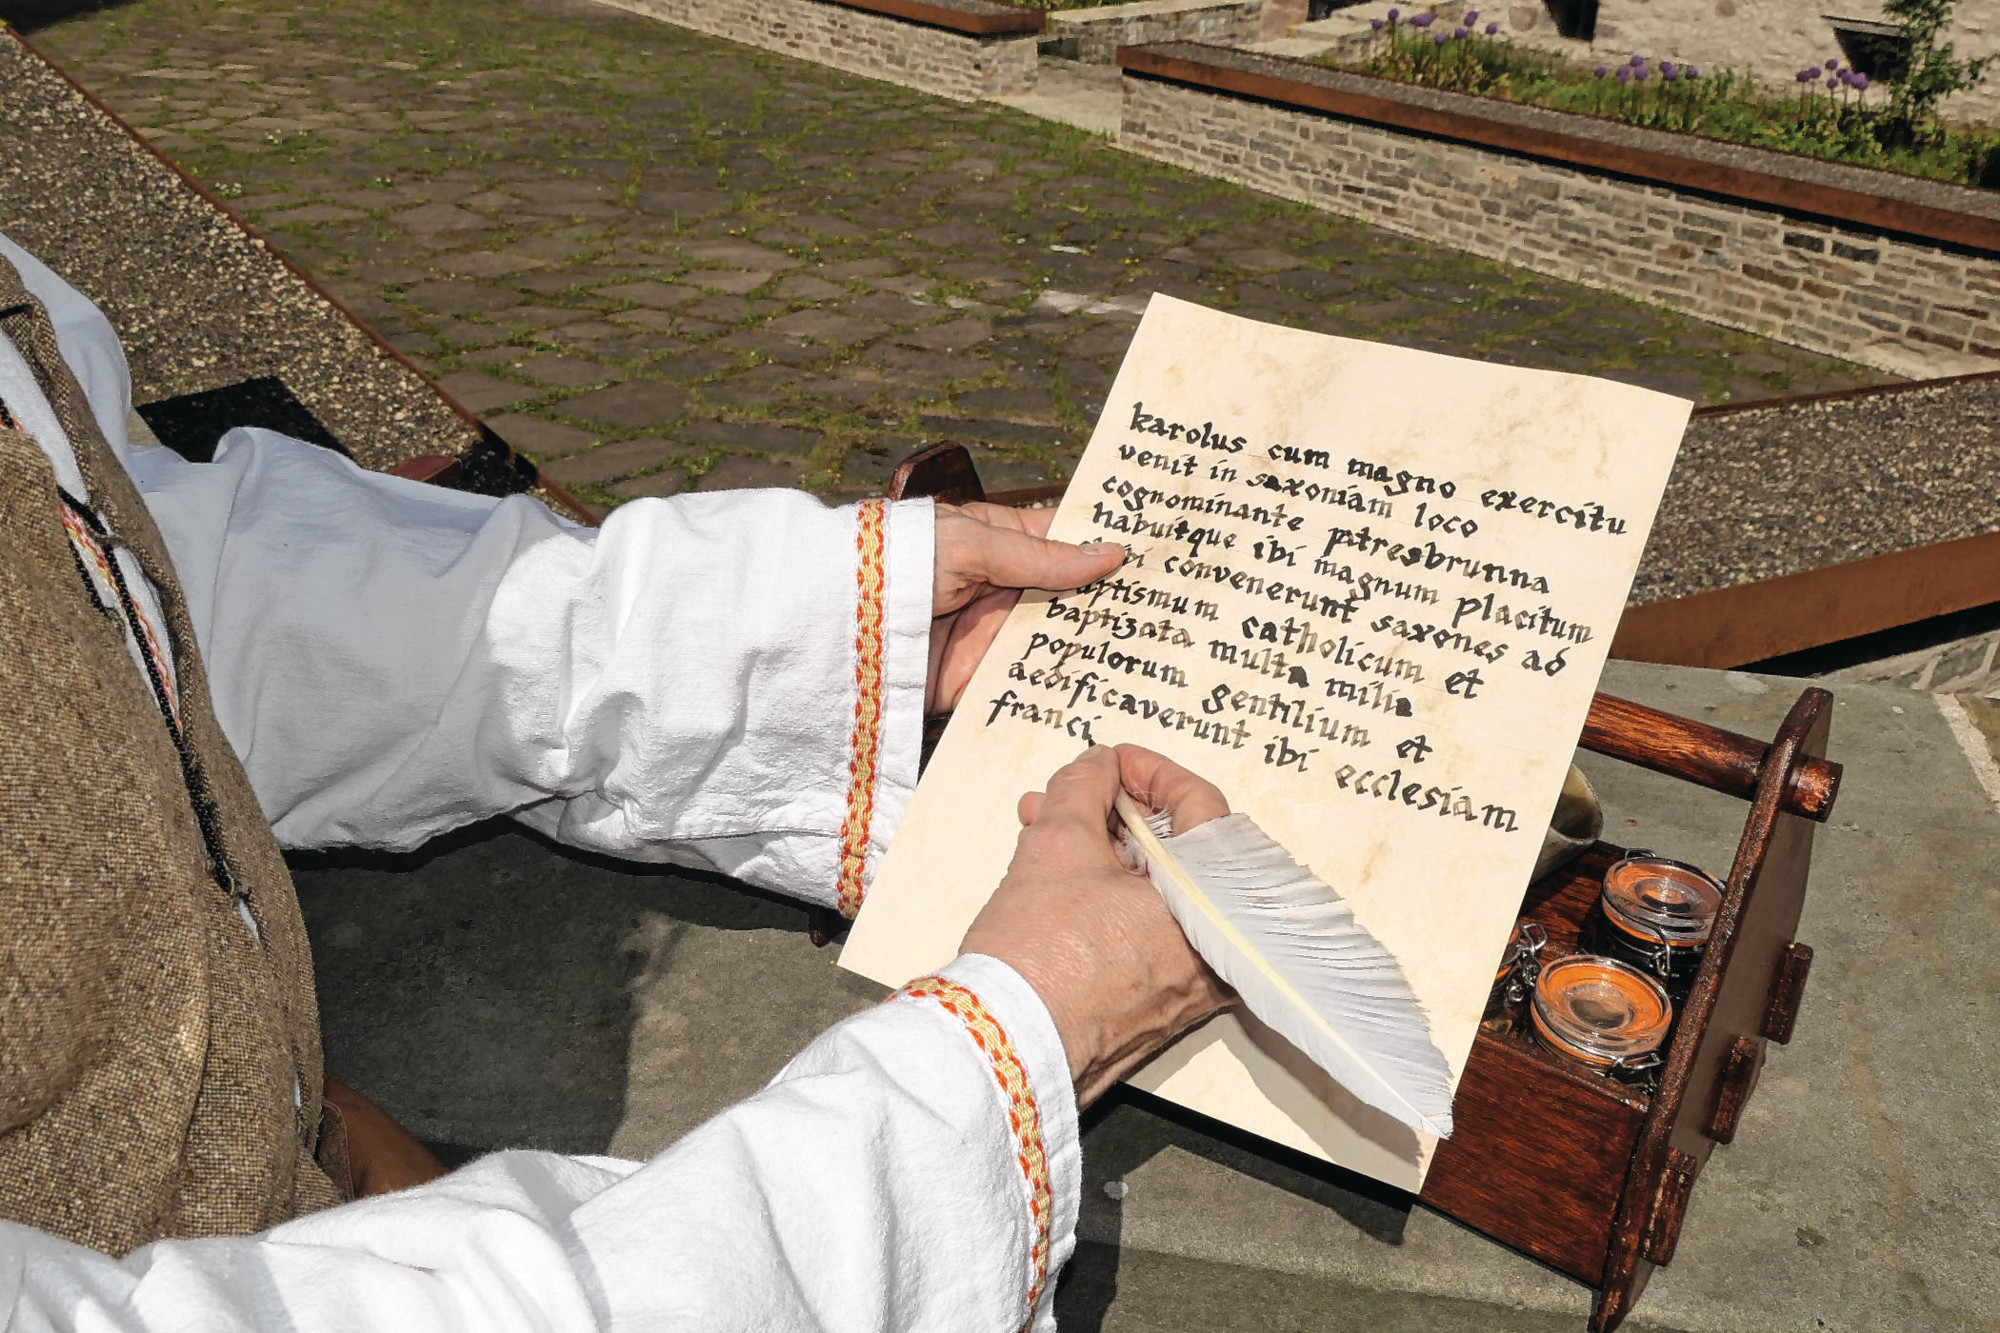 karolus cum magno exercitu
venit in saxoniam loco
cognominante patresbrunna
habuitque ibi magnum placitum
ibi convenerunt saxones ad
baptismum catholicum et
baptizata multa milia
populorum gentilium et
aedificaverunt ibi ecclesiam
franci